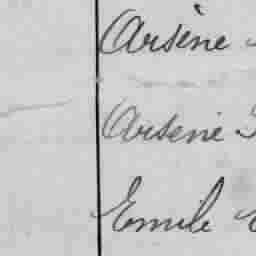 Arsène
Arsene
Emile